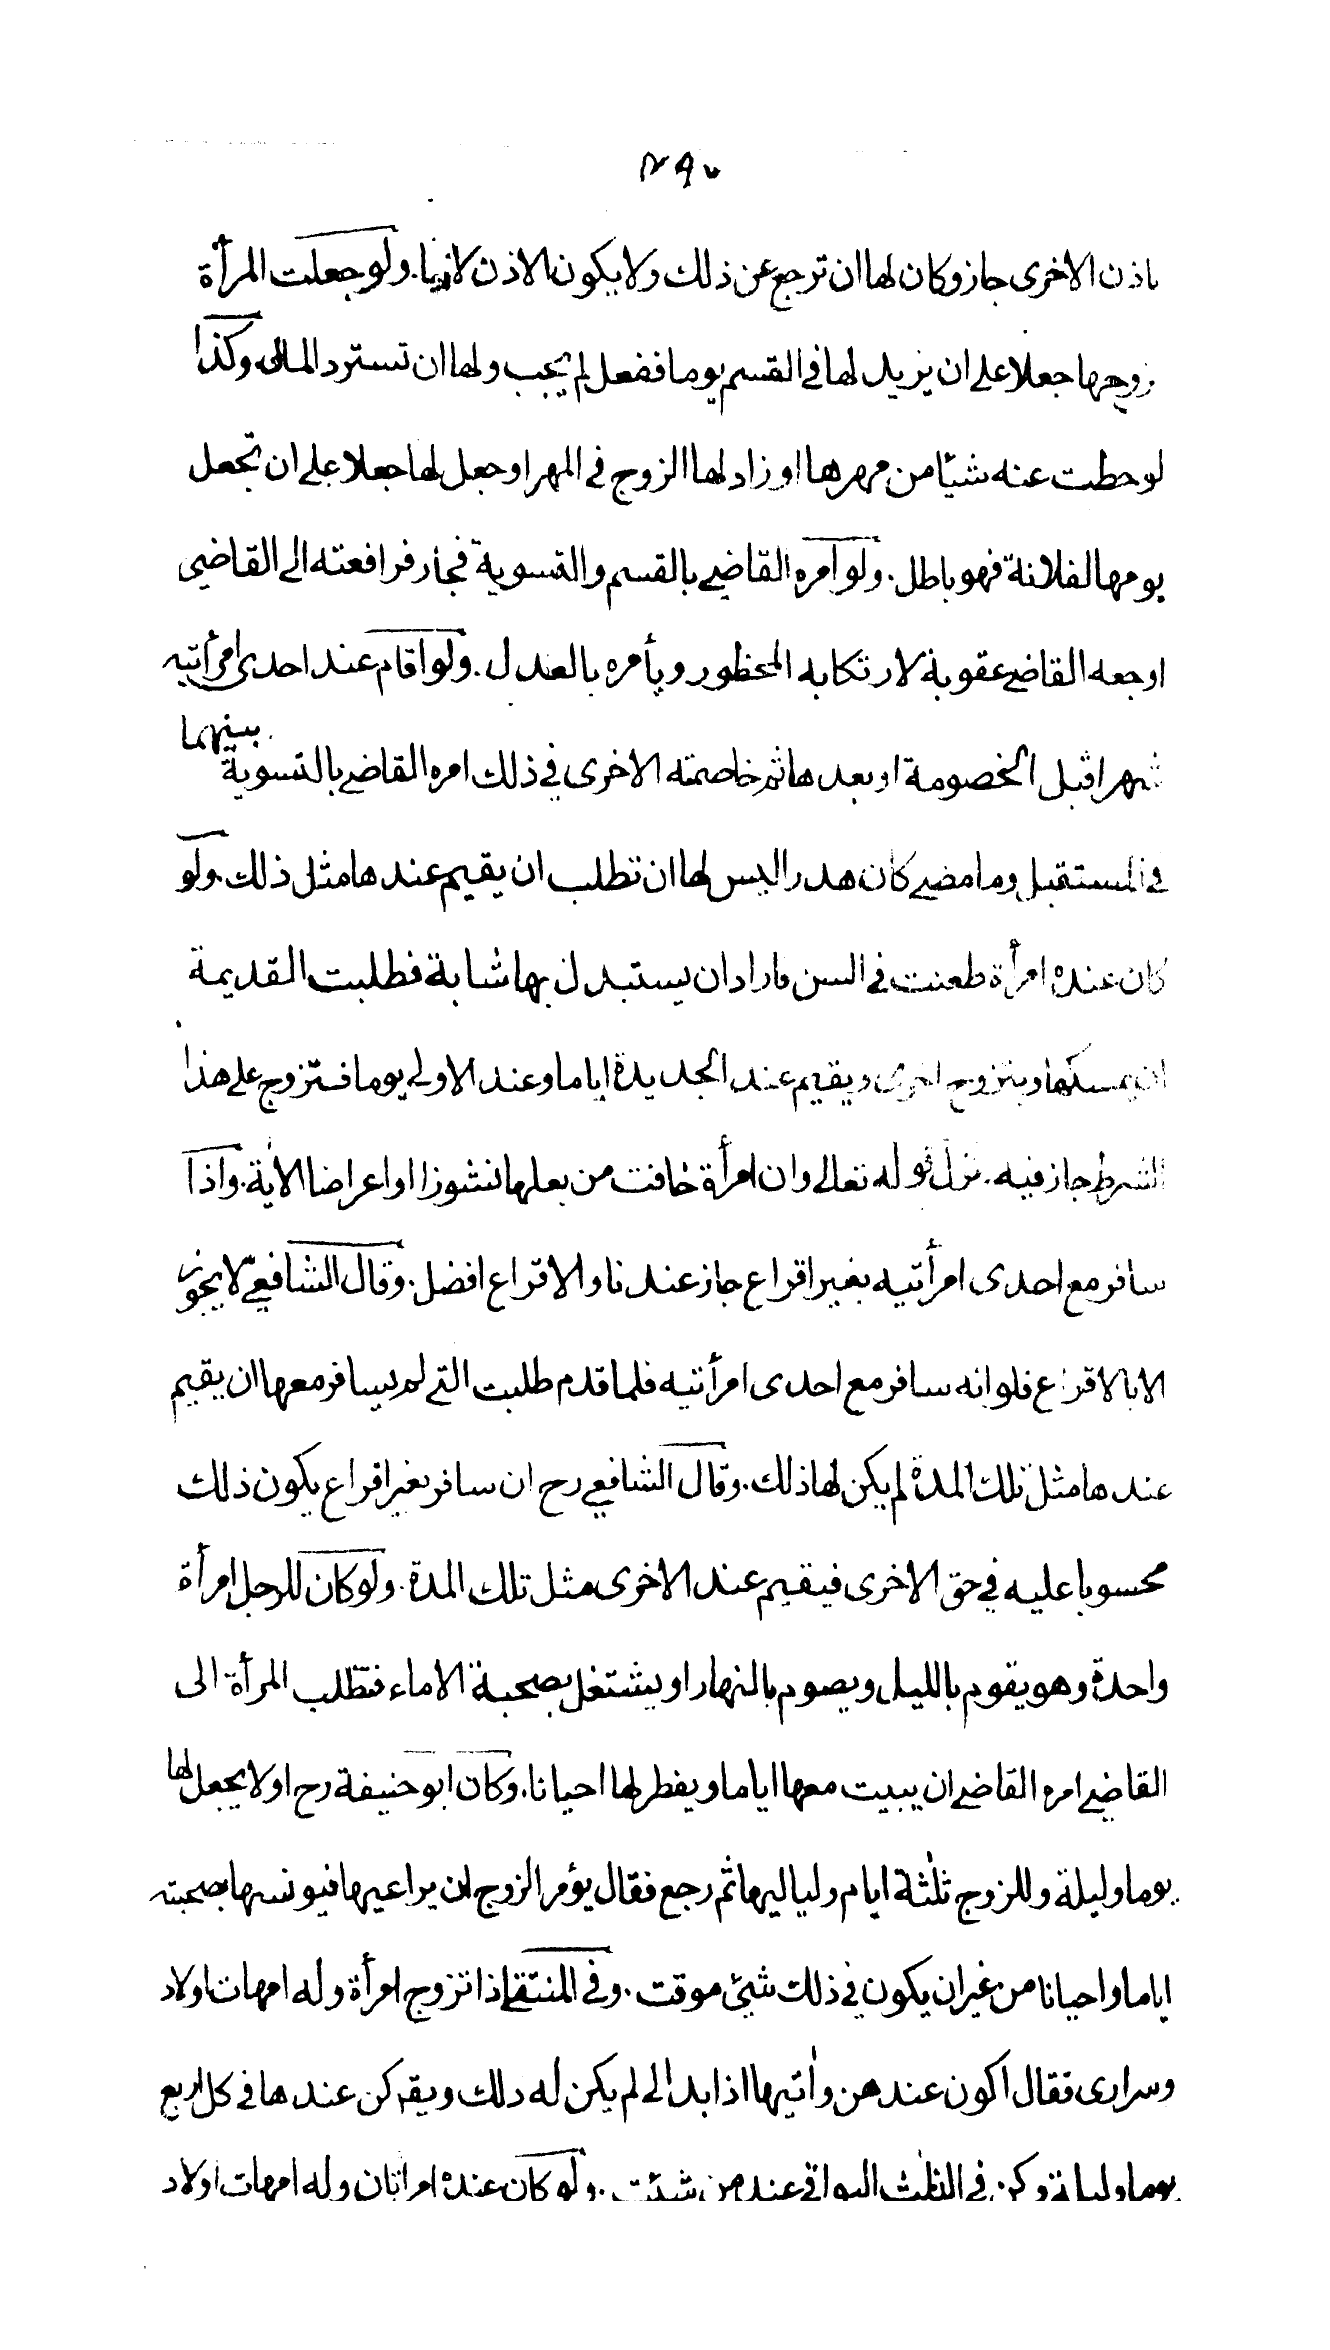 باذن الاخرى جاز وكان لها ان ترجع عن ذلك ولا يكون الاذن لازما. ولو جعلت المرأة
زوجها جعلا على ان يزيد لها في القسم يوما ففعل لم يجب ولها ان تسترد المال. وكذا
لو حطت عنه شيأ من مهرها او زاد لها الزوج في المهر او جعل لها جعلا على ان تجعل
يومها لفلانة فهو باطل. ولو امره القاضي بالقسم والتسوية فجار فرافعته الى القاضي
اوجعه القاضي عقوبة لارتكابه المحظور ويأمره بالعدل. ولو اقام عند احدى امرأتيه
شهرا قبل الخصومة او بعدها ثم خاصمته الاخرى في ذلك امره القاضي بالتسوية بينهما
في المستقبل وما مضى كان هدرا ليس لها ان تطلب ان يقيم عندها مثل ذلك. ولو
كان عنده امرأة طعنت في السن فاراد ان يستبدل بها شابة فطلبت القديمة
ان يمسكها ويتزوج اخرى ويقيم عند الجديدة اياما وعند الاولى يوما فتزوج على هذا
الشرط جاز فيه. نزل قوله تعالى وان امرأة خافت من بعلها نشوزا او اعراضا الاية. واذا
سافر مع احدى امرأتيه بغير اقراع جاز عندنا والاقراع افضل. وقال الشافعي لا يجوز
الا بالاقراع فلو انه سافر مع احدى امرأتيه فلما قدم طلبت التي لم يسافر معها ان يقيم
عندها مثل تلك المدة لم يكن لها ذلك. وقال الشافعي رح ان سافر بغير اقراع يكون ذلك
محسوبا عليه في حق الاخرى فيقيم عند الاخرى مثل تلك المدة. ولو كان للرجل امرأة
واحدة وهو يقوم بالليل ويصوم بالنهار او يشتغل بصحبة الاماء فتظلب المرأة الى
القاضي امره القاضي ان يبيت معها اياما ويفطر لها احيانا. وكان ابو حنيفة رح اولا يجعل لها
يوما وليلة وللزوج ثلثة ايام ولياليها ثم رجع فقال يؤمر الزوج ان يراعيها فيونسها بصحبته
اياما واحيانا من غير ان يكون في ذلك شيئ موقت. وفي المنتقى اذا تزوج امرأة وله امهات اولاد
وسرارى فقال اكون عندهن واتيها اذا بدا لى لم يكن له ذلك ويقر كن عندها في كل اربع
يوما وليلة وكن في الثلث البواقي عند من شئت. ولو كان عنده امراتان وله امهات اولاد